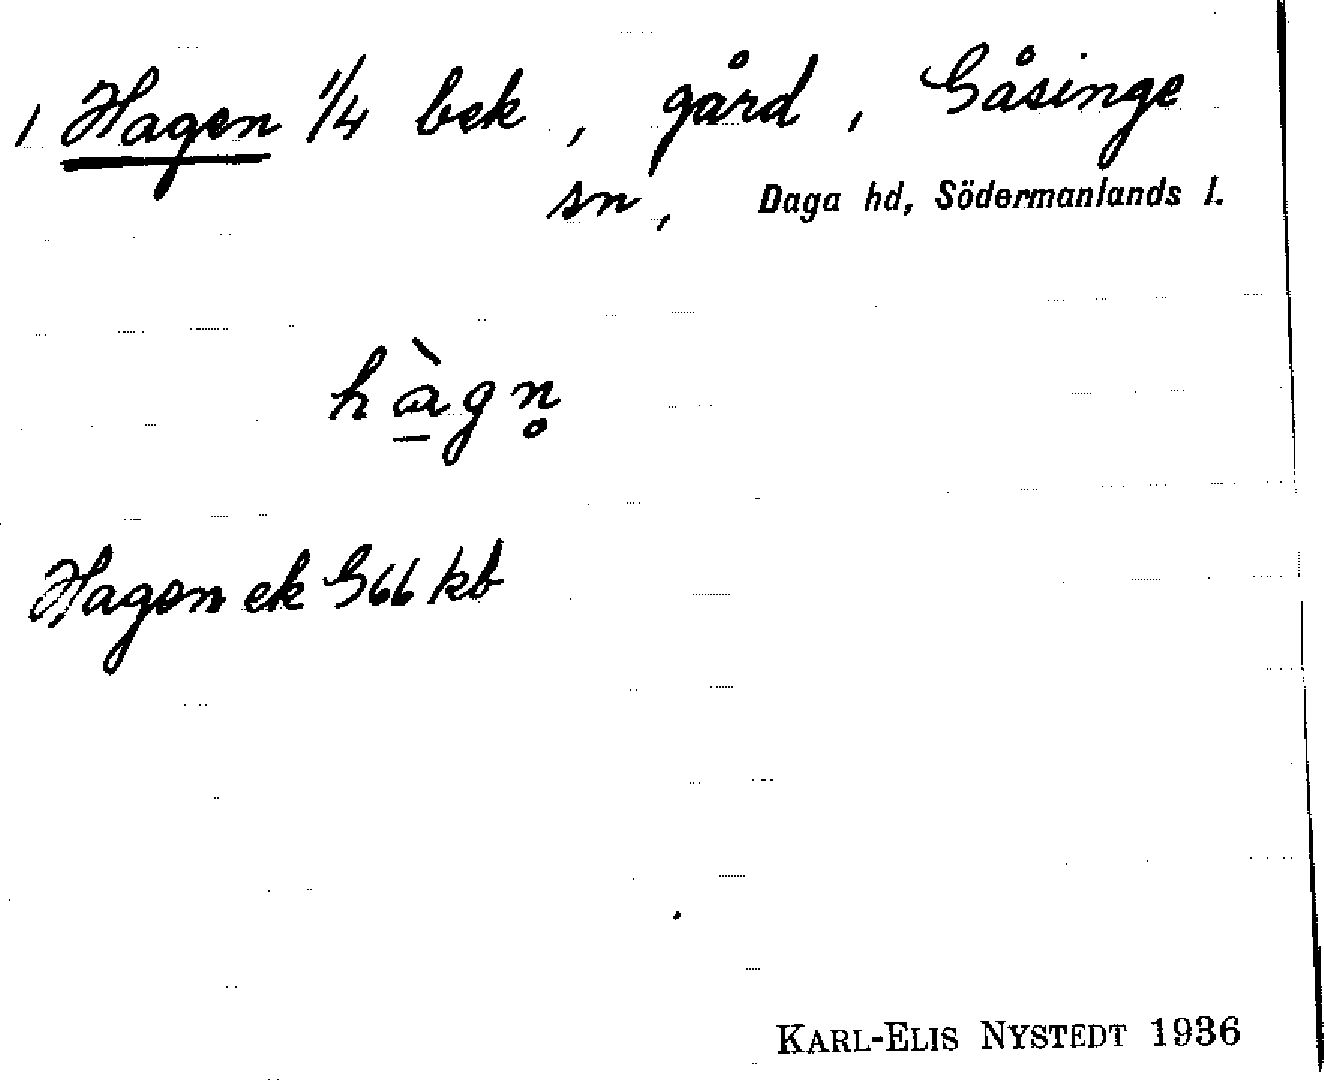 1 Hagen 1/4 bek, gård, Gåsinge
sn, Daga hd, Södermanlands l.
hàgn̥
Hagen ek G66 kb
KARL-ELIS NYSTEDT 1936